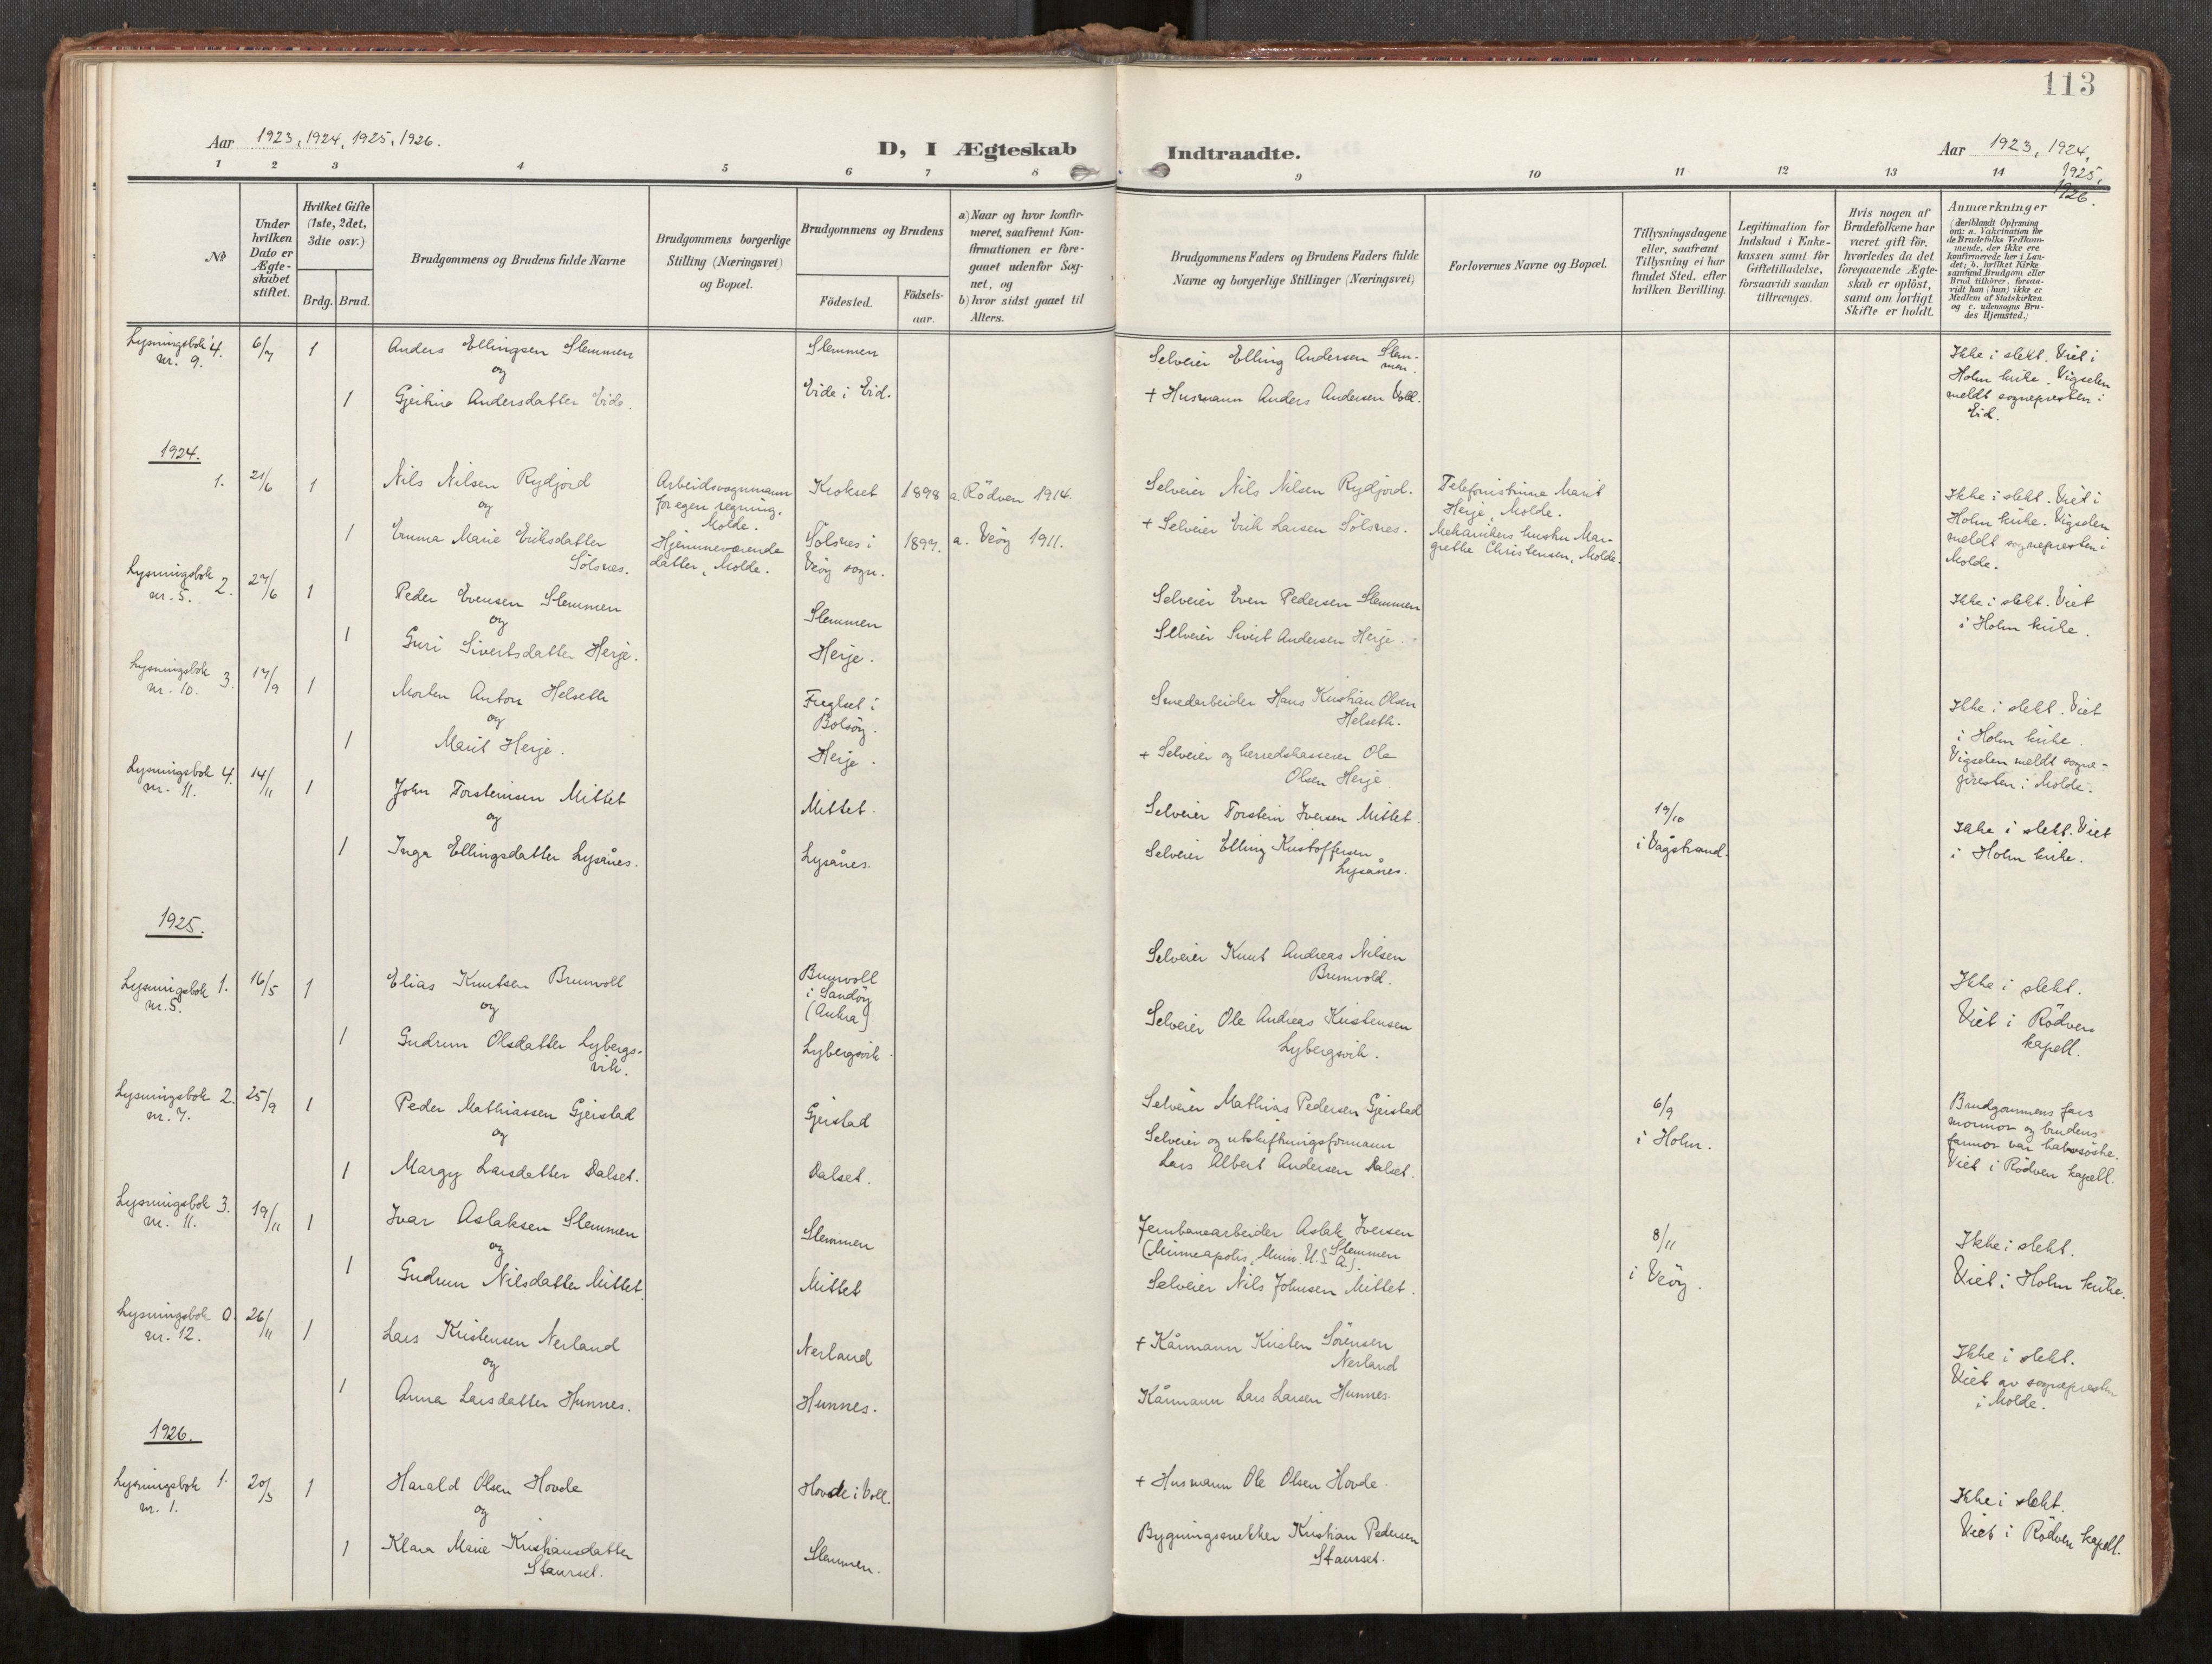 113
Aar 1923, 1924, 1925, 1926.
D, I Ægteskab Indtraadte.
Aar 1923, 1924,
1925,
1926.
1 2 3 4 5 6 7 8 9 10 11 12 13 14
No
Under hvilken Dato er Ægte-skabet stiftet.
Hvilket Gifte (1ste, 2det, 3die osv.)
Brdg. Brud.
Brudgommens og Brudens fulde Navne
Brudgommens borgerlige Stilling (Næringsvei) og Bopæl.
Brudgommens og Brudens
Födested. Födsels-aar.
a) Naar og hvor konfir-meret, saafremt Kon-firmationen er fore-gaaet udenfor Sog-net, og
b) hvor sidst gaaet til Alters.
Brudgommens Faders og Brudens Faders fulde Navne og borgerlige Stillinger (Næringsvei)
Forlovernes Navne og Bopæl.
Tillysningsdagene eller, saafremt Tillysning ei har fundet Sted, efter hvilken Bevilling.
Legitimation for Indskud i Enke-kassen samt for Giftetilladelse, forsaavidt saadan tiltrænges.
Hvis nogen af Brudefolkene har været gift för, hvorledes da det foregaaende Ægte-skab er oplöst, samt om lovligt Skifte er holdt.
Anmærkninger
(deriblandt Oplysning om: a. Vakcination for de Brudefolks Vedkom-mende, der ikke ere konfirmerede her i Lan-det; b. hvilket Kirke-samfund Brudgom eller Brud tilhörer, forsaa-vidt han (hun) ikke er Medlem af Statskirken og c. udensogns Bru-des Hjemsted.)
Lysningsbok 4. 6/7 1 Anders Ellingsen Slemmen Slemmen Selveier Elling Andersen Slem-men. Ikke i slekt. Viet i
nr. 9. og Holm kirke. Vigselen
1 Gjertine Andersdatter Eide. Eide i Eid. + Husmann Anders Andersen Voll. meldt sognepresten i
Eid.
1924.
1. 21/6 1 Nils Nilsen Rydjord Arbeidsvognmann for egen regning. Molde. Krokset 1898 a. Rödven 1914. Selveier Nils Nilsen Rydjord. Telefonistinne Marit Herje, Molde. Ikke i slekt. Viet i
og Holm kirke. Vigselen
1 Emma Marie Eriksdatter Sölsnes. Hjemmeværende datter, Molde. Sölsnes i Veöy sogn. 1897. a. Veöy 1911. + Selveier Erik Larsen Sölsnes. Mekanikers hustru Mar-grethe Christensen, Molde. meldt sognepresten i
Molde.
Lysningsbok 2. 27/6 1 Peder Evensen Slemmen Slemmen Selveier Even Pedersen Slemmen Ikke i slekt. Viet
nr. 5. og i Holm kirke.
1 Guri Sivertsdatter Herje. Herje. Selveier Sivert Andersen Herje.
Lysningsbok 3. 17/9 1 Morten Anton Helseth Fuglset i Bolsöy. Smedarbeider Hans Kristian Olsen Helseth. Ikke i slekt. Viet
nr. 10. og i Holm kirke.
1 Marit Herje. Herje. + Selveier og herredskasserer Ole Olsen Herje. Vigselen meldt sogne-
presten i Molde.
Lysningsbok 4. 14/11 1 John Torsteinsen Mittet Mittet. Selveier Torstein Iversen Mittet. 19/10
nr. 11. og i Vågstrand. Ikke i slekt. Viet
1 Inga Ellingsdatter Lysånes. Lysånes. Selveier Elling Kristoffersen Lysånes. i Holm kirke.
1925.
Lysningsbok 1. 16/5 1 Elias Knutsen Brunvoll Brunvoll i Sandöy (Aukra) Selveier Knut Andreas Nilsen Brunvold. Ikke i slekt.
nr. 5. og Viet i Rödven
1 Gudrun Olsdatter Lybergs-vik. Lybergsvik. Selveier Ole Andreas Kristensen Lybergsvik. kapell.
Lysningsbok 2. 25/9 1 Peder Mathiassen Gjerstad Gjerstad Selveier Mathias Pedersen Gjerstad 6/9 Brudgommens fars
nr. 7. og i Holm. mormor og brudens
1 Margy Larsdatter Dalset. Dalset. Selveier og utskiftningsformann Lars Albert Andersen Dalset. farmor var halvsöstre.
Viet i Rödven kapell.
Lysningsbok 3. 19/11 1 Ivar Aslaksen Slemmen Slemmen Jernbanearbeider Aslak Iversen Slemmen (Minneapolis, Minn. U.S.A). 8/11 Ikke i slekt.
nr. 11. og i Veöy.
1 Gudrun Nilsdatter Mittet. Mittet Selveier Nils Johnsen Mittet. Viet i Holm kirke.
Lysningsbok 0. 26/11 1 Lars Kristensen Nerland Nerland + Kårmann Kristen Sörensen Nerland Ikke i slekt.
nr. 12. og Viet av sognepresten
1 Anna Larsdatter Hunnes. Hunnes. Kårmann Lars Larsen Hunnes. i Molde.
1926.
Lysningsbok 1. 20/3 1 Harald Olsen Hovde Hovde i Voll. + Husmann Ole Olsen Hovde. Ikke i slekt.
nr. 1. og
1 Klara Marie Kristiansdatter Staurset. Slemmen. Bygningssnekker Kristian Pedersen Staurset. Viet i Rödven kapell.